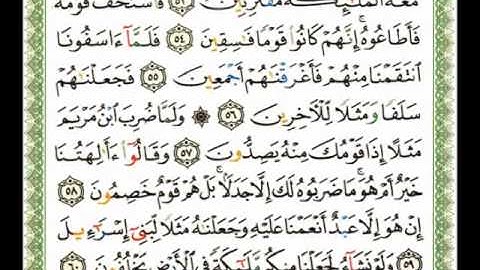 مَعَهُ الْمَلَٰئِكَةُ مُقْتَرِنِينَ ٥٣ فَاسْتَخَفَّ قَوْمَهُ
فَأَطَاعُوهُ ۚ إِنَّهُمْ كَانُوا قَوْمًا فَاسِقِينَ ٥٤ فَلَمَّا ءَاسَفُونَا
انْتَقَمْنَا مِنْهُمْ فَأَغْرَقْنَاهُمْ أَجْمَعِينَ ٥٥ فَجَعَلْنَاهُمْ
سَلَفًا وَمَثَلًا لِلْآخِرِينَ ٥٦ ۞ وَلَمَّا ضُرِبَ ابْنُ مَرْيَمَ
مَثَلًا إِذَا قَوْمُكَ مِنْهُ يَصِدُّونَ ٥٧ وَقَالُوا ءَأَٰلِهَتُنَا
خَيْرٌ أَمْ هُوَ ۚ مَا ضَرَبُوهُ لَكَ إِلَّا جَدَلًا ۚ بَلْ هُمْ قَوْمٌ خَصِمُونَ ٥٨
إِنْ هُوَ إِلَّا عَبْدٌ أَنْعَمْنَا عَلَيْهِ وَجَعَلْنَاهُ مَثَلًا لِبَنِي إِسْرَٰءِيلَ
٥٩ وَلَوْ نَشَاءُ لَجَعَلْنَا مِنْكُمْ مَلَٰئِكَةً فِي الْأَرْضِ يَخْلُفُونَ ٦٠